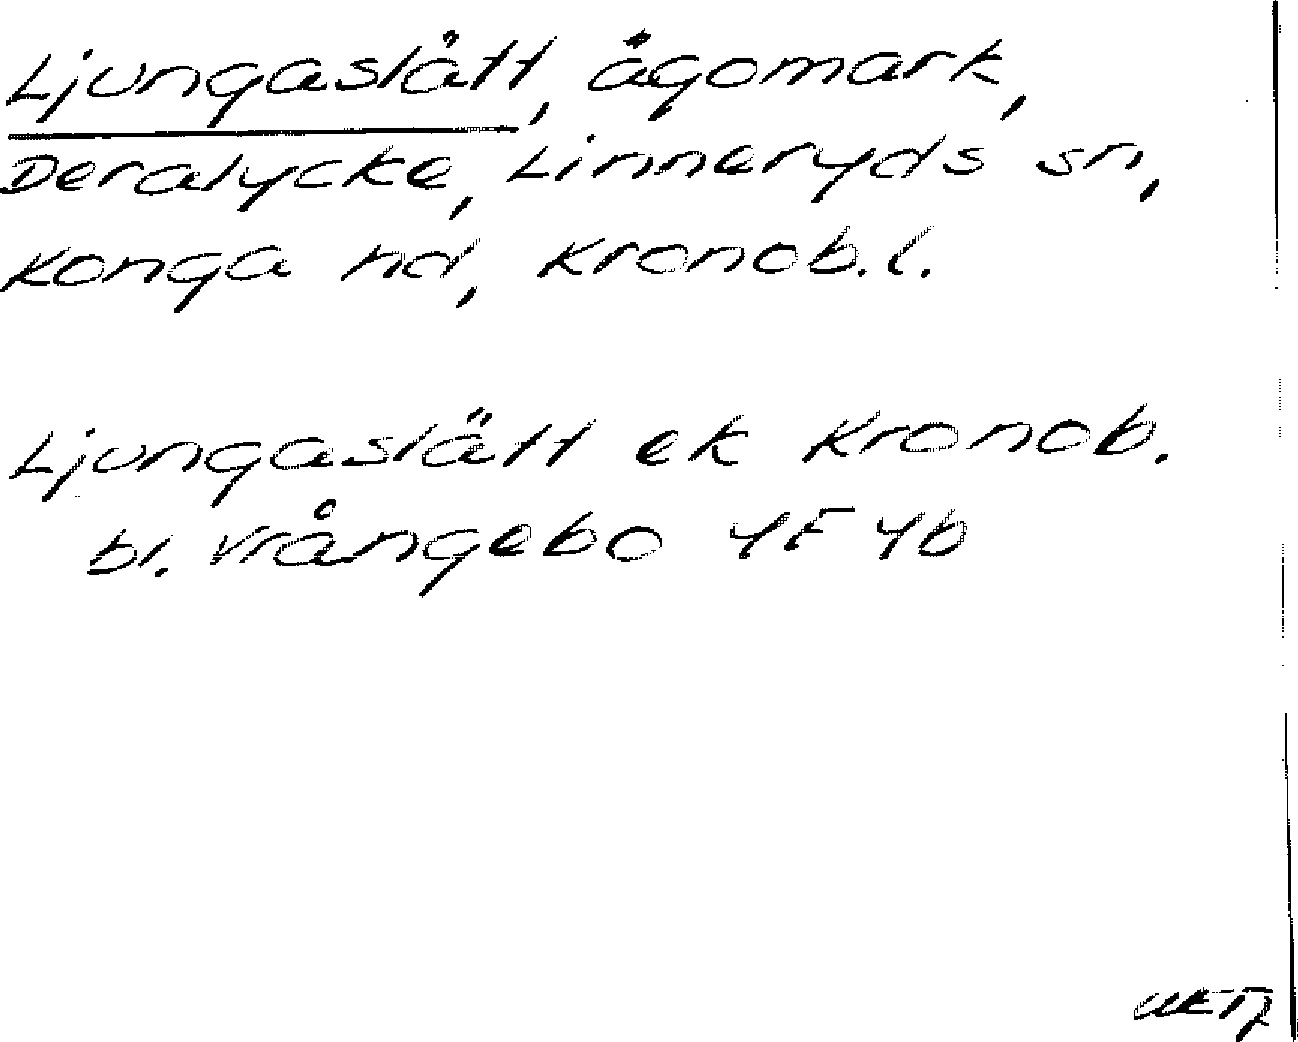 Ljungaslätt, ägomark,
Deralycke, Linneryds sn,
Konga hd, Kronob.l.
Ljungaslätt ek Kronob.
bl. Vrångebo 4F 4b